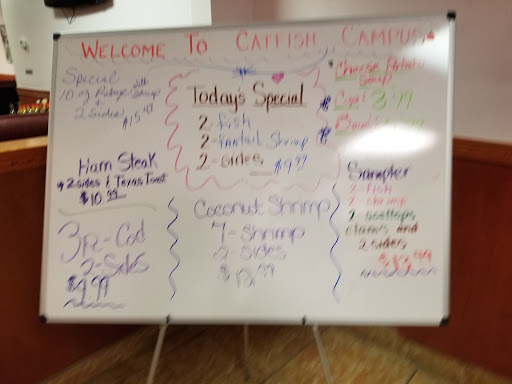 WELCOME TO CATFISH CAMPUS
Special
10 oz Ridge Shrimp with
2 Sides
Ham Steak
2 sides & Texas Toast
$10.99
3pc-Cod
2-Sides
$9.99
Today's Special
2-fish
2-fantail Shrimp
2-sides $9.99
Coconut Shrimp
7-Shrimp
2-Sides
$12.99
Cheese Potato
Soup
Cup 3.49
Sampler
2 fish
2 shrimp
2 scallops
clams and
2 sides